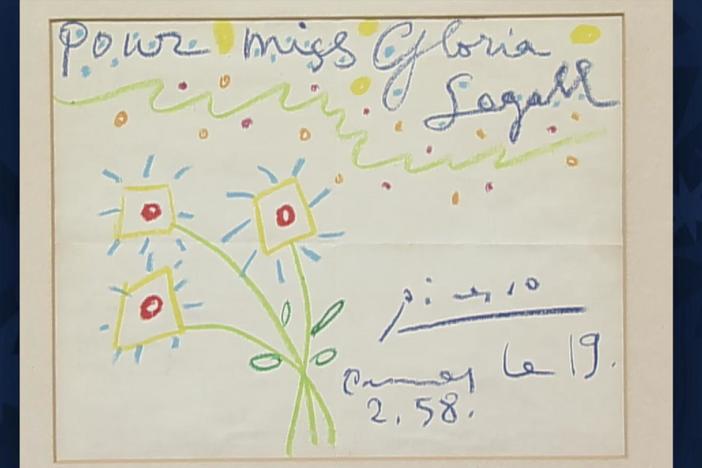 Pour miss Gloria
Segall
Picasso
Cannes le 19.
2.58.